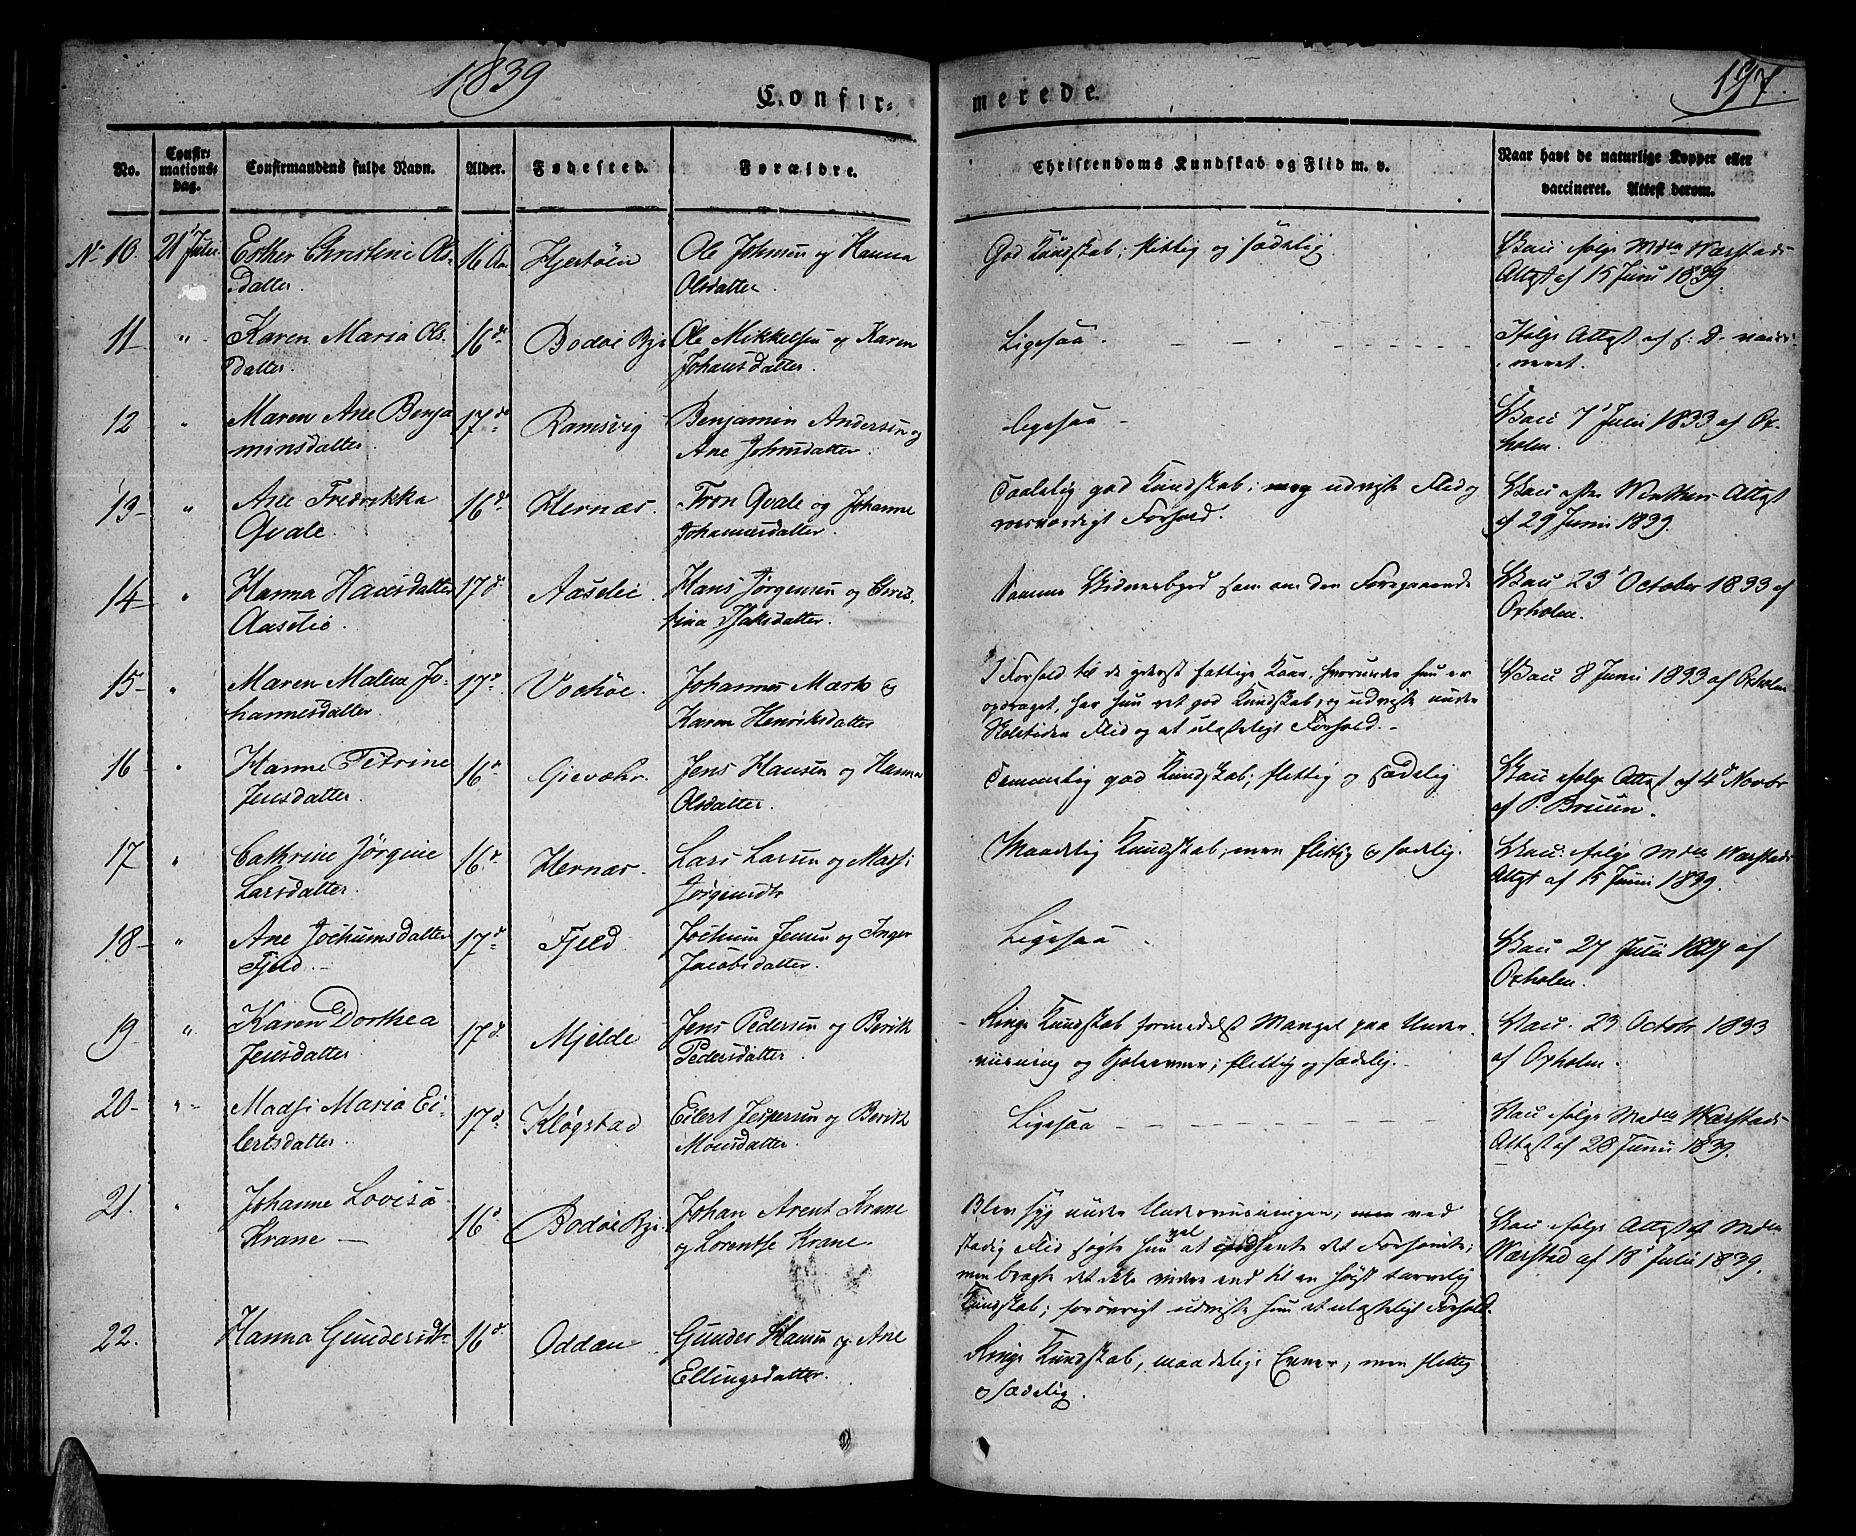 1839
Confir-
merede.
197.
No.
Confir-
mations-
dag.
Confirmandens fulde Navn.
Alder.
Fødested.
Forældre.
Christendoms Kundskab og Flid m. v.
Naar havt de naturlige Kopper eller
vaccineret. Attest derom.
No 10. 21 Julii Esther Christine Ols-
datter.
16 Aar
Hjertøen
Ole Johnsen og Hanna
Olsdatter.
God Kundskab; flittig og sædelig
Vacc. ifølge Md. Wærstads
Attest af 15 Junii 1839.
11 " Karen Maria Ols
datter.
16 d.
Bodøe Bye
Ole Mikkelsen og Karen
Johansdatter.
Ligesaa.
Ifølge Attest af s. D. vacci-
neret.
12 " Maren Ane Benja
minsdatter.
17 d.
Ramsvig
Benjamin Andersen og
Ane Johnsdatter.
ligesaa
Vacc. 7 Julii 1833 af Ox-
holm.
13 " Ane Fredrikka
Qvale.
16 d.
Hernæs.
Tron Qvale og Johanne
Johannesdatter.
Taalelig god Kundskab; udviste Flid og
rosværdigt Forhold.
Vacc. efter Attest
af 29 Junii 1839.
14 " Hanna Hansdatter
Aaselie.
17 d.
Aaselie.
Hans Jørgensen og Chris-
tina Isaksdatter.
Samme Vidnesbyrd som om den Foregaaende
Vacc. 23 October 1833 af
Oxholm.
15 " Maren Malena Jo-
hannesdatter.
17 d.
Vochøe.
Johannes Mark og
Karen Henriksdatter
I Forhold til de yderst fattige Kaar, hvorunder hun er
opdraget, har hun ret god Kundskab, og udviste under
Skoletiden Flid og et ulasteligt Forhold.
Vacc. 8 Junii 1833 af Oxholm
16 " Hanne Petrine
Jensdatter.
16 d.
Gievæhr.
Jens Hansen og Hanna
Olsdatter.
Temmelig god Kundskab; flittig og sædelig
Vacc. ifølge Attest af 4 Novbr
af P. Bruun.
17 " Cathrine Jørgine
Larsdatter.
16 d.
Hernæs.
Lars Larsen og Madsi
Jørgensdtr
Maadelig Kundskab, men flittig og sædelig.
Vacc. ifølge Md. Wærstads
Attest af 15 Junii 1839.
18 " Ane Jochumsdatter
Fjeld.
17 d.
Fjeld.
Jochum Jensen og Inger
Jacobsdatter.
Ligesaa
Vacc. 27 Julii 1827 af
Oxholm.
19 " Karen Dorthea
Jensdatter.
17 d.
Mjelde
Jens Pedersen og Berit
Pedersdatter.
Ringe Kundskab formedelst Mangel paa Under-
viisning og; flittig og sædelig.
Vacc. 23 Octobr. 1833
af Oxholm.
20 " Madsi Maria Ei-
lertsdatter.
17 d.
Kløgstad
Eilert Jespersen og Berit
Monsdatter.
Ligesaa
Vacc. ifølge Md. Wærstads
Attest af 28 Junii 1839.
21. " Johanne Lovisa
Krane
16 d.
Bodøe Bye.
Johan Arent Krane
og Lorentse Krane.
Blev syg under Underviisningen; men ved
stadig Flid søgte hun vel at indhente det Forsømte;
men bragte det ikke videre end til en høist tarvelig
Kundskab; forøvrigt udviste hun et ulasteligt Forhold.
Vacc. ifølge Attest af Md.
Wærstad af 18 Julii 1839.
22. Hanna Gundersdtr.
16 d.
Oddan
Gunder Hansen og Ane
Ellingsdatter.
Ringe Kundskab, maadelige Evner, men flittig
og sædelig.